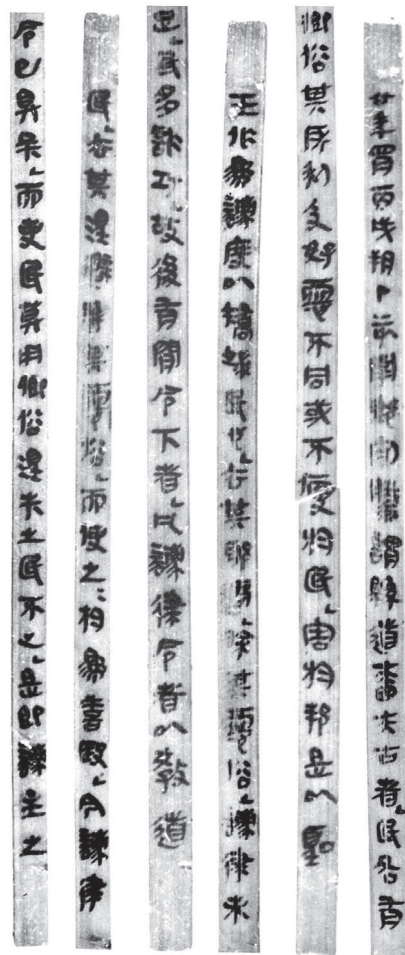 廿年四月丙戌朔丁亥南郡守騰謂縣道嗇夫古者民各有
鄉俗其所利及好惡不同或不便於民害於邦是以聖
王作為灋度以矯端民心去其邪避除其惡俗灋律未
足民多詐巧故後有閒令下者凡灋律令者以教道
民去其淫避除其惡俗而使之=於為善殹今灋律
令已具矣而吏民莫用鄉俗淫失之民不止是即灋主之